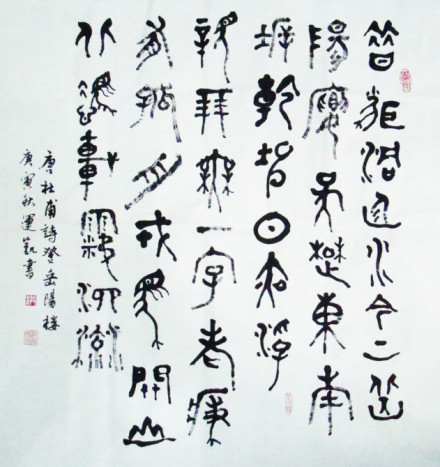 昔聞洞庭水今上岳
陽樓吳楚東南
坼乾坤日夜浮
親朋無一字老病
有孤舟戎馬關山
北憑軒涕泗流
唐杜甫詩登岳陽樓
庚寅秋運凱書